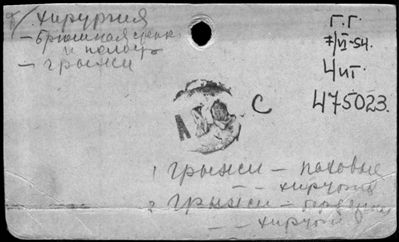 Хирургия
- Брюшная стенк
и полость
- грыжи
Г.Г.
7/VI-54.
4 иг.
475023.
С
1 Грыжи - паховые
- хирургия
2 Грыжи - бедрен
- хирургия